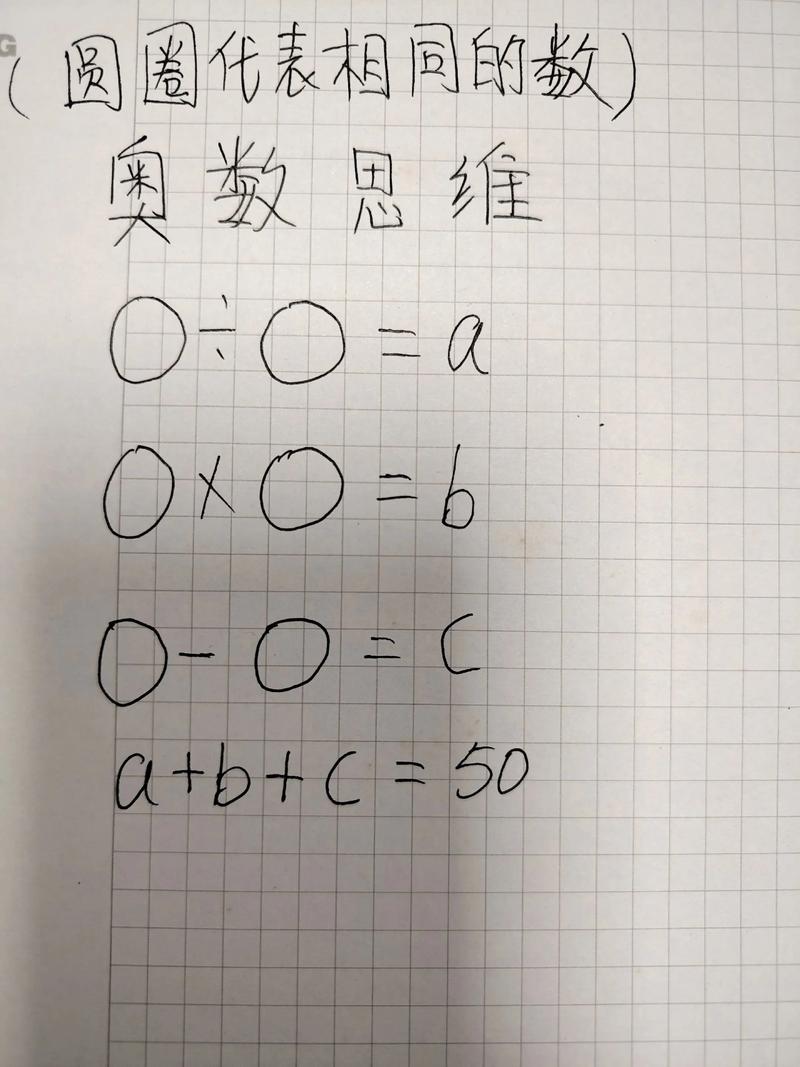 (圆圈代表相同的数)
奥数思维
○÷○=a
○×○=b
○-○=c
a+b+c=50